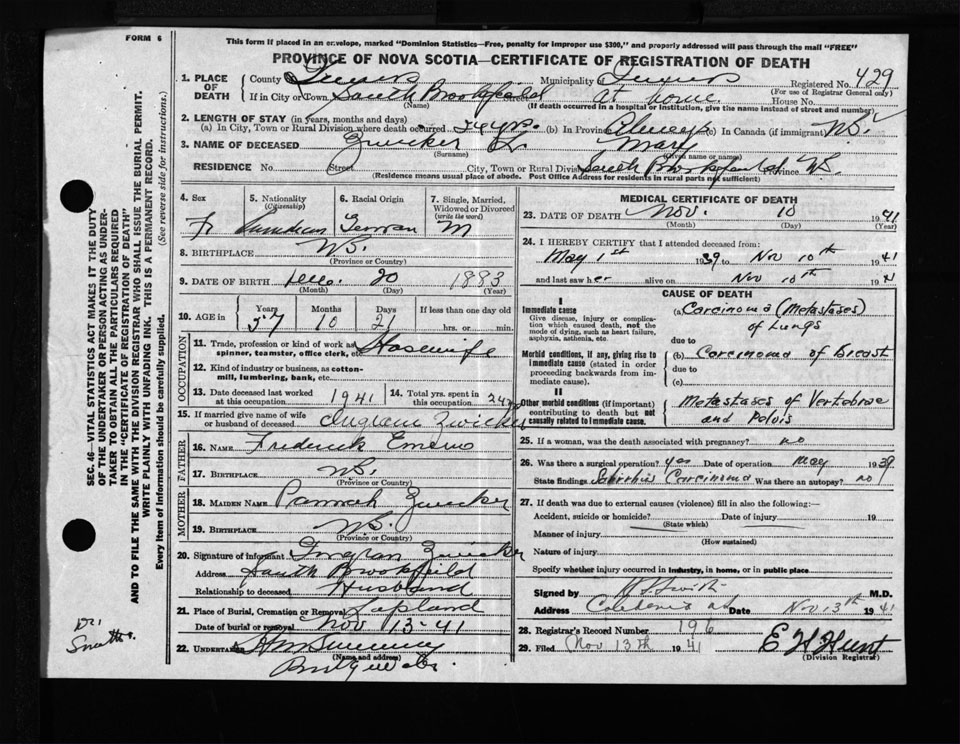 FORM 6
This form if placed in an envelope, marked "Dominion Statistics—Free, penalty for improper use $300," and properly addressed will pass through the mail "FREE"
PROVINCE OF NOVA SCOTIA—CERTIFICATE OF REGISTRATION OF DEATH
1. PLACE OF DEATH County Queens Municipality of Queens Registered No. 429
(For use of Registrar General only)
If in City or Town South Brookfield Street at home House No.
(Name) (If death occurred in a hospital or institution, give the name instead of street and number)
2. LENGTH OF STAY (in years, months and days)
(a) In City, Town or Rural Division where death occurred 24 yrs. (b) In Province Always (c) In Canada (if immigrant) N.S.
3. NAME OF DECEASED Zwicker Mary
(Surname) (Given name or names)
RESIDENCE No. Street City, Town or Rural Division South Brookfield Province N.S.
(Residence means usual place of abode. Post Office Address for residents in rural parts not sufficient)
4. Sex 5. Nationality (Citizenship) 6. Racial Origin 7. Single, Married, Widowed or Divorced (write the word)
F Canadian German M
8. BIRTHPLACE N.S.
(Province or Country)
9. DATE OF BIRTH Dec. 20 1883
(Month) (Day) (Year)
10. AGE in Years Months Days If less than one day old
57 10 21 hrs. or min.
OCCUPATION
11. Trade, profession or kind of work as spinner, teamster, office clerk, etc. Housewife
12. Kind of industry or business, as cotton-mill, lumbering, bank, etc.
13. Date deceased last worked at this occupation 1941 14. Total yrs. spent in this occupation 24
15. If married give name of wife or husband of deceased Ingram Zwicker
FATHER
16. Name Frederick
17. Birthplace N.S.
(Province or Country)
MOTHER
18. Maiden Name Zwicker
19. Birthplace N.S.
(Province or Country)
20. Signature of informant Ingram Zwicker
Address South Brookfield
Relationship to deceased Husband
21. Place of Burial, Cremation or Removal Lapland
Date of burial or removal Nov 13-41
22. Undertaker
(Name and address)
Bridgewater
MEDICAL CERTIFICATE OF DEATH
23. DATE OF DEATH Nov. 10 1941
(Month) (Day) (Year)
24. I HEREBY CERTIFY that I attended deceased from:
May 1st 1939 to Nov 10th 1941
and last saw her alive on Nov 10th 1941
CAUSE OF DEATH
I
Immediate cause
Give disease, injury or complication which caused death, not the mode of dying, such as heart failure, asphyxia, asthenia, etc.
(a) Carcinoma (Metastases) of Lungs
due to
Morbid conditions, if any, giving rise to immediate cause (stated in order proceeding backwards from immediate cause).
(b) Carcinoma of Breast
due to
(c)
II
Other morbid conditions (if important) contributing to death but not causally related to immediate cause.
Metastases of Vertebrae and Pelvis
25. If a woman, was the death associated with pregnancy? no
26. Was there a surgical operation? yes Date of operation May 1939
State findings Scirrhus Carcinoma Was there an autopsy? no
27. If death was due to external causes (violence) fill in also the following:—
Accident, suicide or homicide? Date of injury 19
(State which)
Manner of injury
(How sustained)
Nature of injury
Specify whether injury occurred in Industry, in home, or in public place
Signed by Smith M.D.
Address Caledonia Date Nov 13th 1941
28. Registrar's Record Number 196
29. Filed Nov 13th 1941 E H Hunt
(Division Registrar)
SEC. 46—VITAL STATISTICS ACT MAKES IT THE DUTY
OF THE UNDERTAKER OR PERSON ACTING AS UNDER-
TAKER TO OBTAIN ALL THE PARTICULARS REQUIRED
IN THE "CERTIFICATE OF REGISTRATION OF DEATH"
AND TO FILE THE SAME WITH THE DIVISION REGISTRAR WHO SHALL ISSUE THE BURIAL PERMIT.
WRITE PLAINLY WITH UNFADING INK. THIS IS A PERMANENT RECORD.
Every item of Information should be carefully supplied.
(See reverse side for instructions.)